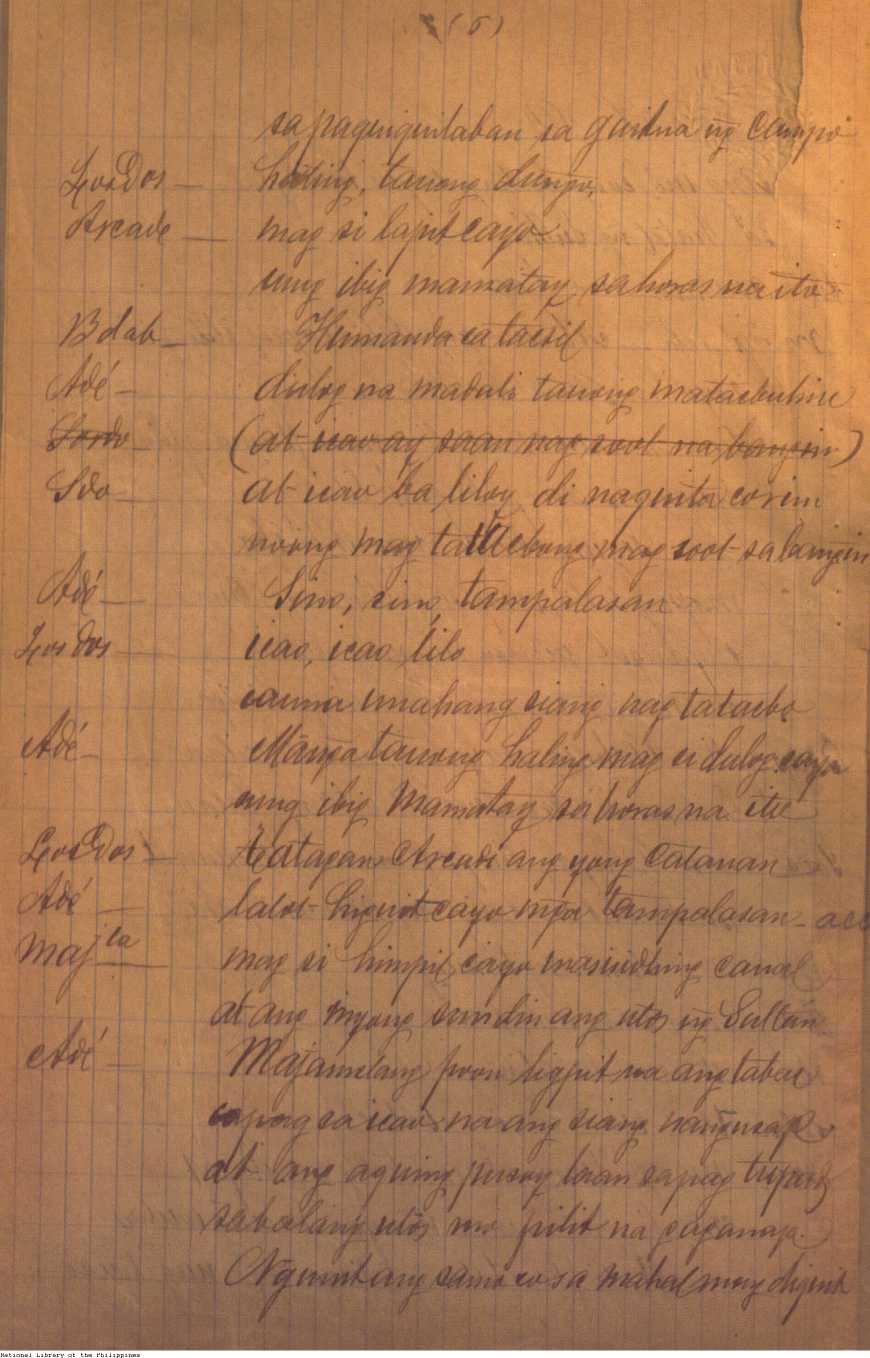 (6)
sa paquiquilaban sa guitna ñg campo
Los Dos — haling, tauong dungo,
Arcade — mag si lapit cayo
ung ibig mamatay sa horas na ito
Bdab — Hermanda ca taesil
Adé — dulog na madali tauong mataebuhin
Sordo — (at icao ay saan nag soot na bangin)
Sdo — at icao ba liloy di naquita corin
noong mag tataebong mag soot sa bangin
Adé — Sino, sino, tampalasan
Los dos — icao, icao lilo
cauna unahang siang nag tataebo
Adé — Mañga tauong haling mag si dulog cayo
ung ibig mamatay sa horas na ito
Los Dos — Catapan Arcade ang yong
Adé — lalot higuit cayo mga tampalasan
Majta — mag si himpil cayo canal
at ang inyong sundin ang utos ñg Sultán
Adé — poon ligpit na ang tabac
capag sa icao na ang siang nañgusap
at ang aquing pusoy laan sa pag tupad
sa balang utos mo pilit na
Ngunit ang samo co sa mahal mong diquit
National Library of the Philippines